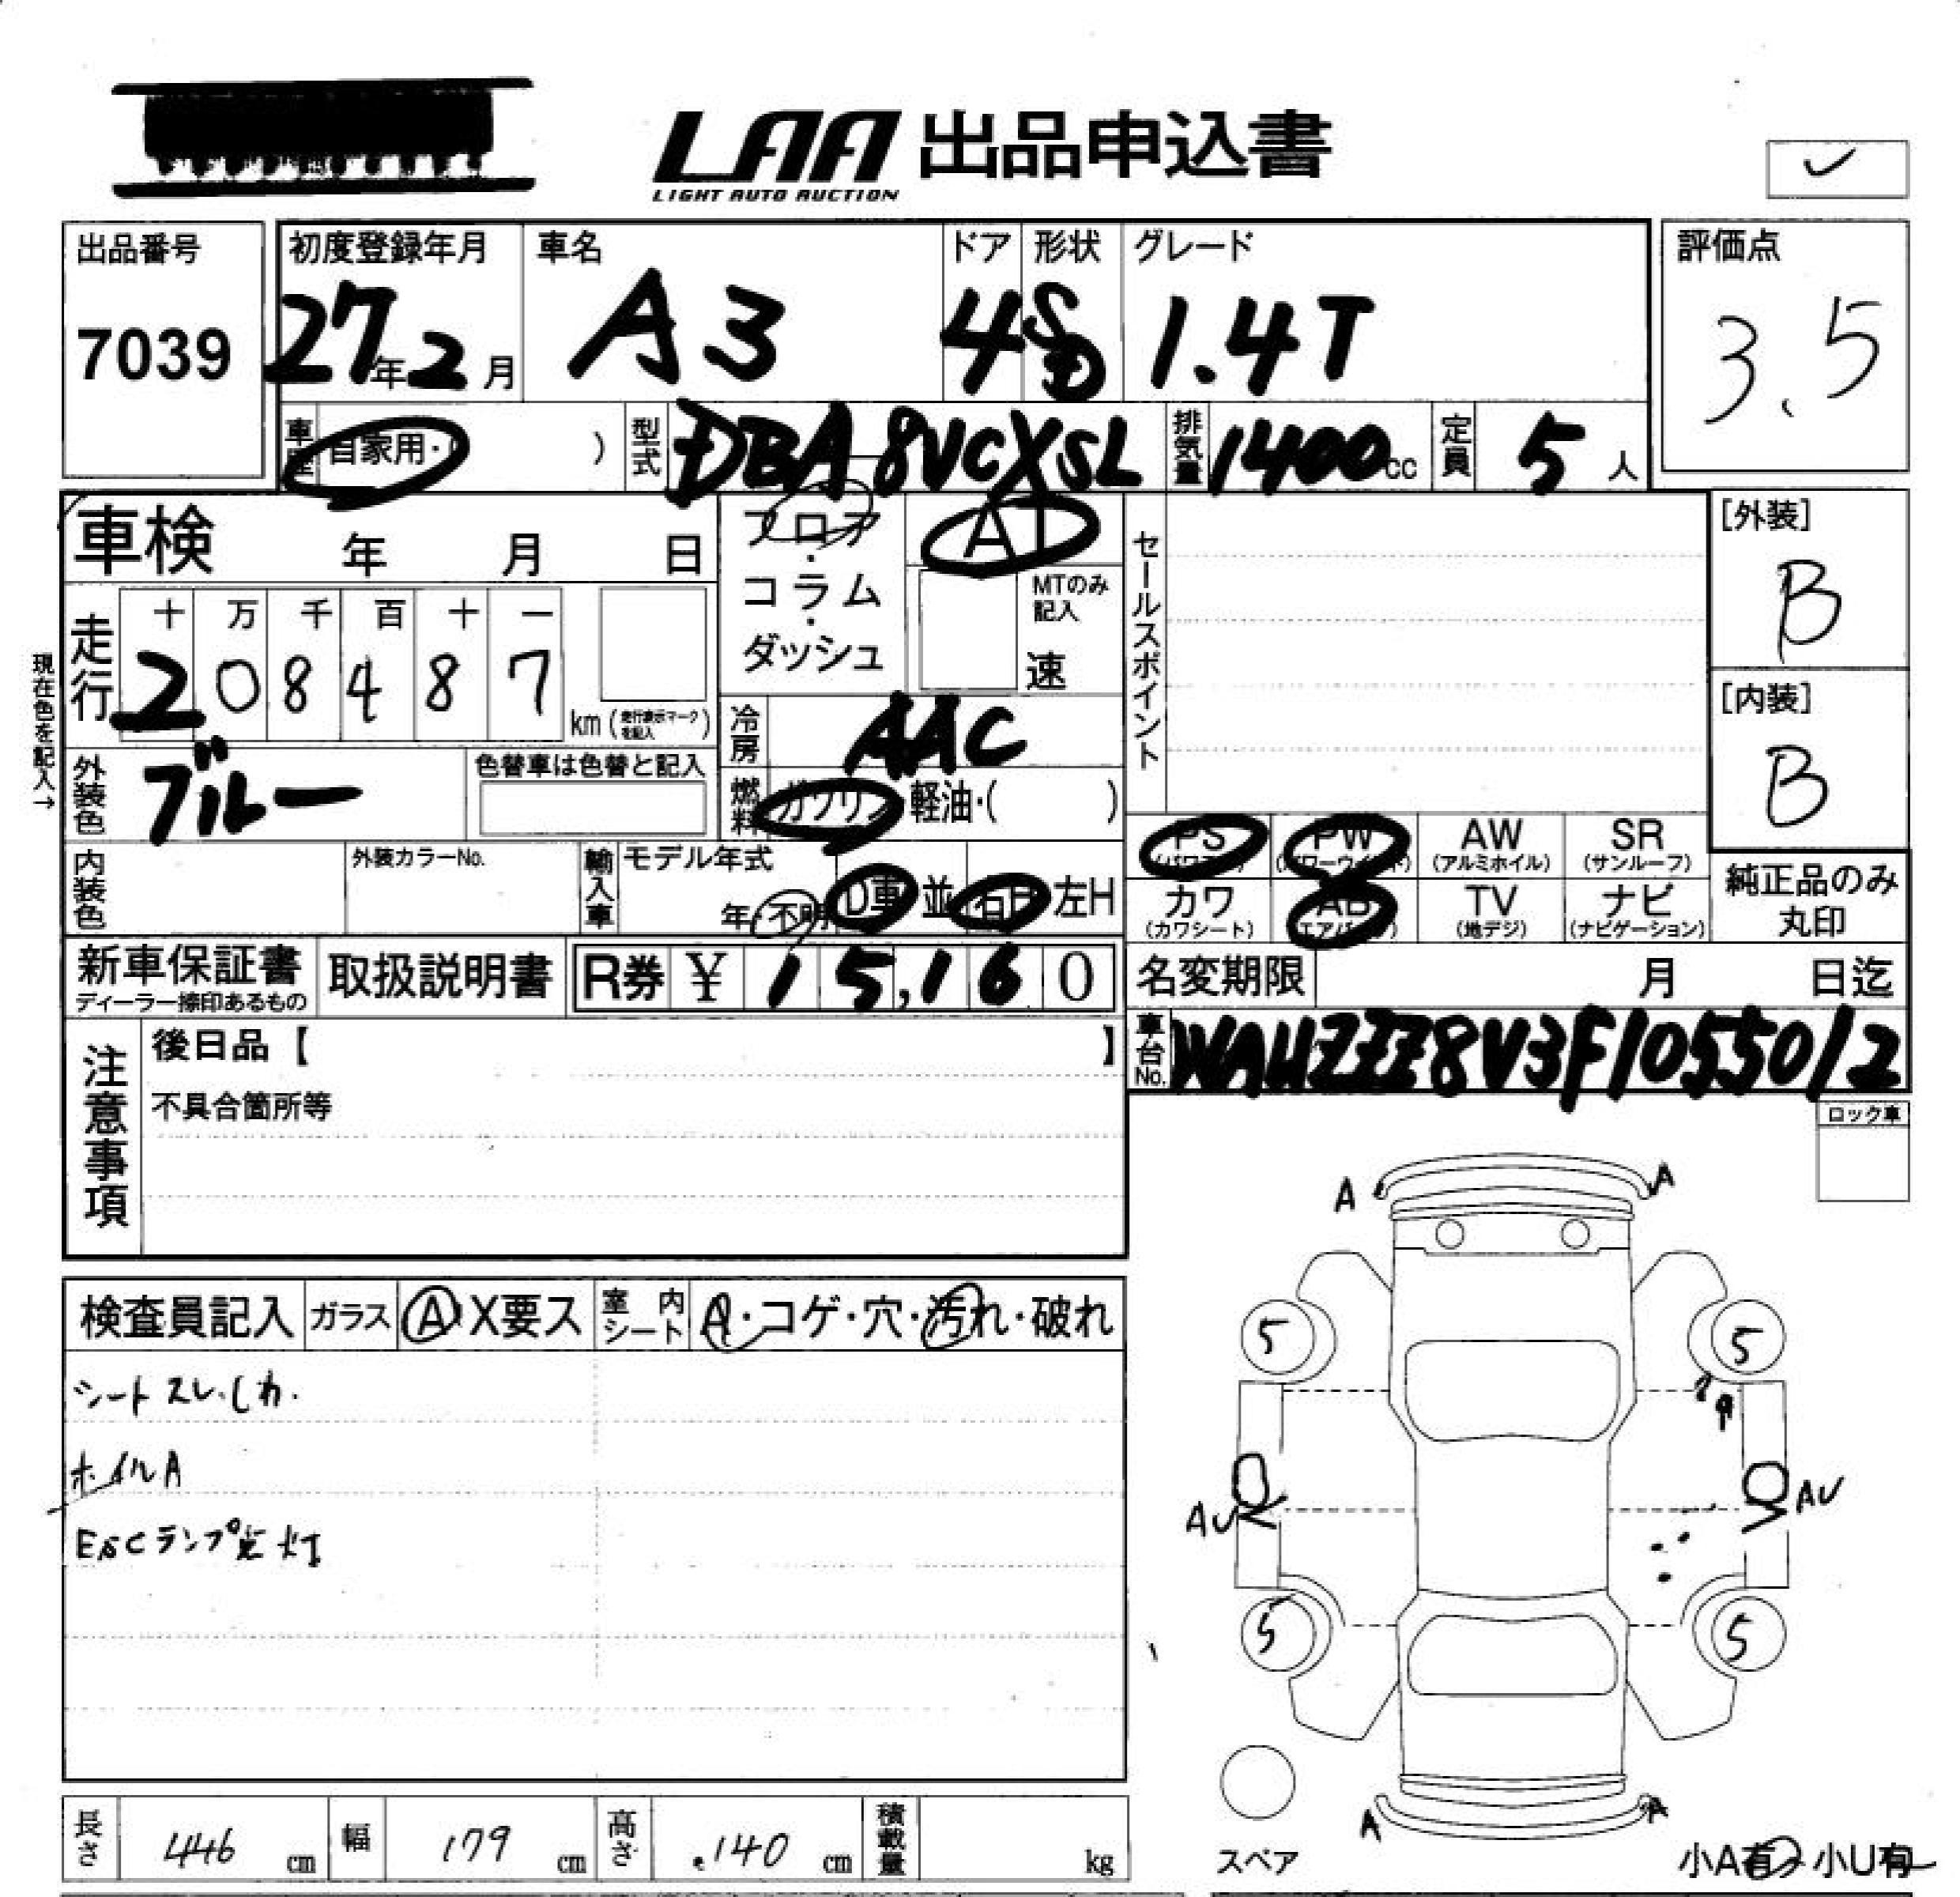 LAA 出品申込書
LIGHT AUTO AUCTION
出品番号
7039
初度登録年月
27年2月
車名
A3
ドア
4
形状
SD
グレード
1.4T
評価点
3.5
車歴 自家用・( )
型式 DBA 8VCXSL
排気量 1400cc
定員 5人
車検 年 月 日
フロア・コラム・ダッシュ
AT
MTのみ記入
速
セールスポイント
[外装]
B
[内装]
B
現在色を記入→
走行
十 万 千 百 十 一
2 0 8 4 8 7 km (走行表示マークを記入)
冷房 AAC
外装色 ブルー
色替車は色替と記入
燃料 ガソリン・軽油・( )
内装色
外装カラーNo.
輸入車
モデル年式
年・不明
D車 並 右H 左H
PS (パワステ)
PW (パワーウインド)
AW (アルミホイル)
SR (サンルーフ)
カワ (カワシート)
AB (エアバッグ)
TV (地デジ)
ナビ (ナビゲーション)
純正品のみ丸印
新車保証書
ディーラー捺印あるもの
取扱説明書
R券 ¥ 15,160
名変期限 月 日迄
車台No. WAUZZZ8V3F1055012
注意事項
後日品【 】
不具合箇所等
ロック車
検査員記入 ガラス A X要ス 室内シート A・コゲ・穴・汚れ・破れ
シートスレ・しわ.
ホイルA
ESCランプ点灯
A A
5 5
AU AU
5 5
A A
スペア
小A有 小U有
長さ 446 cm 幅 179 cm 高さ 140 cm 積載量 kg